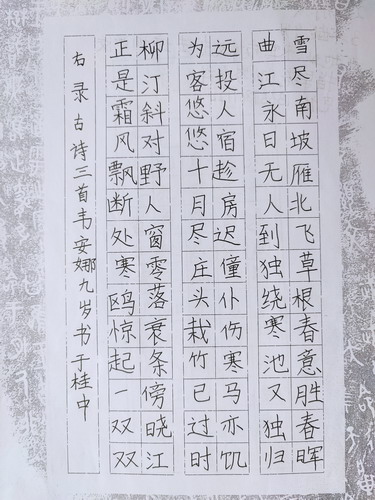 雪尽南坡雁北飞草根春意胜春晖
曲江永日无人到独绕寒池又独归
远投人宿趁房迟僮仆伤寒马亦饥
为客悠悠十月尽庄头栽竹已过时
柳汀斜对野人窗零落衰条傍晓江
正是霜风飘断处寒鸥惊起一双双
右录古诗三首韦安娜九岁书于桂中